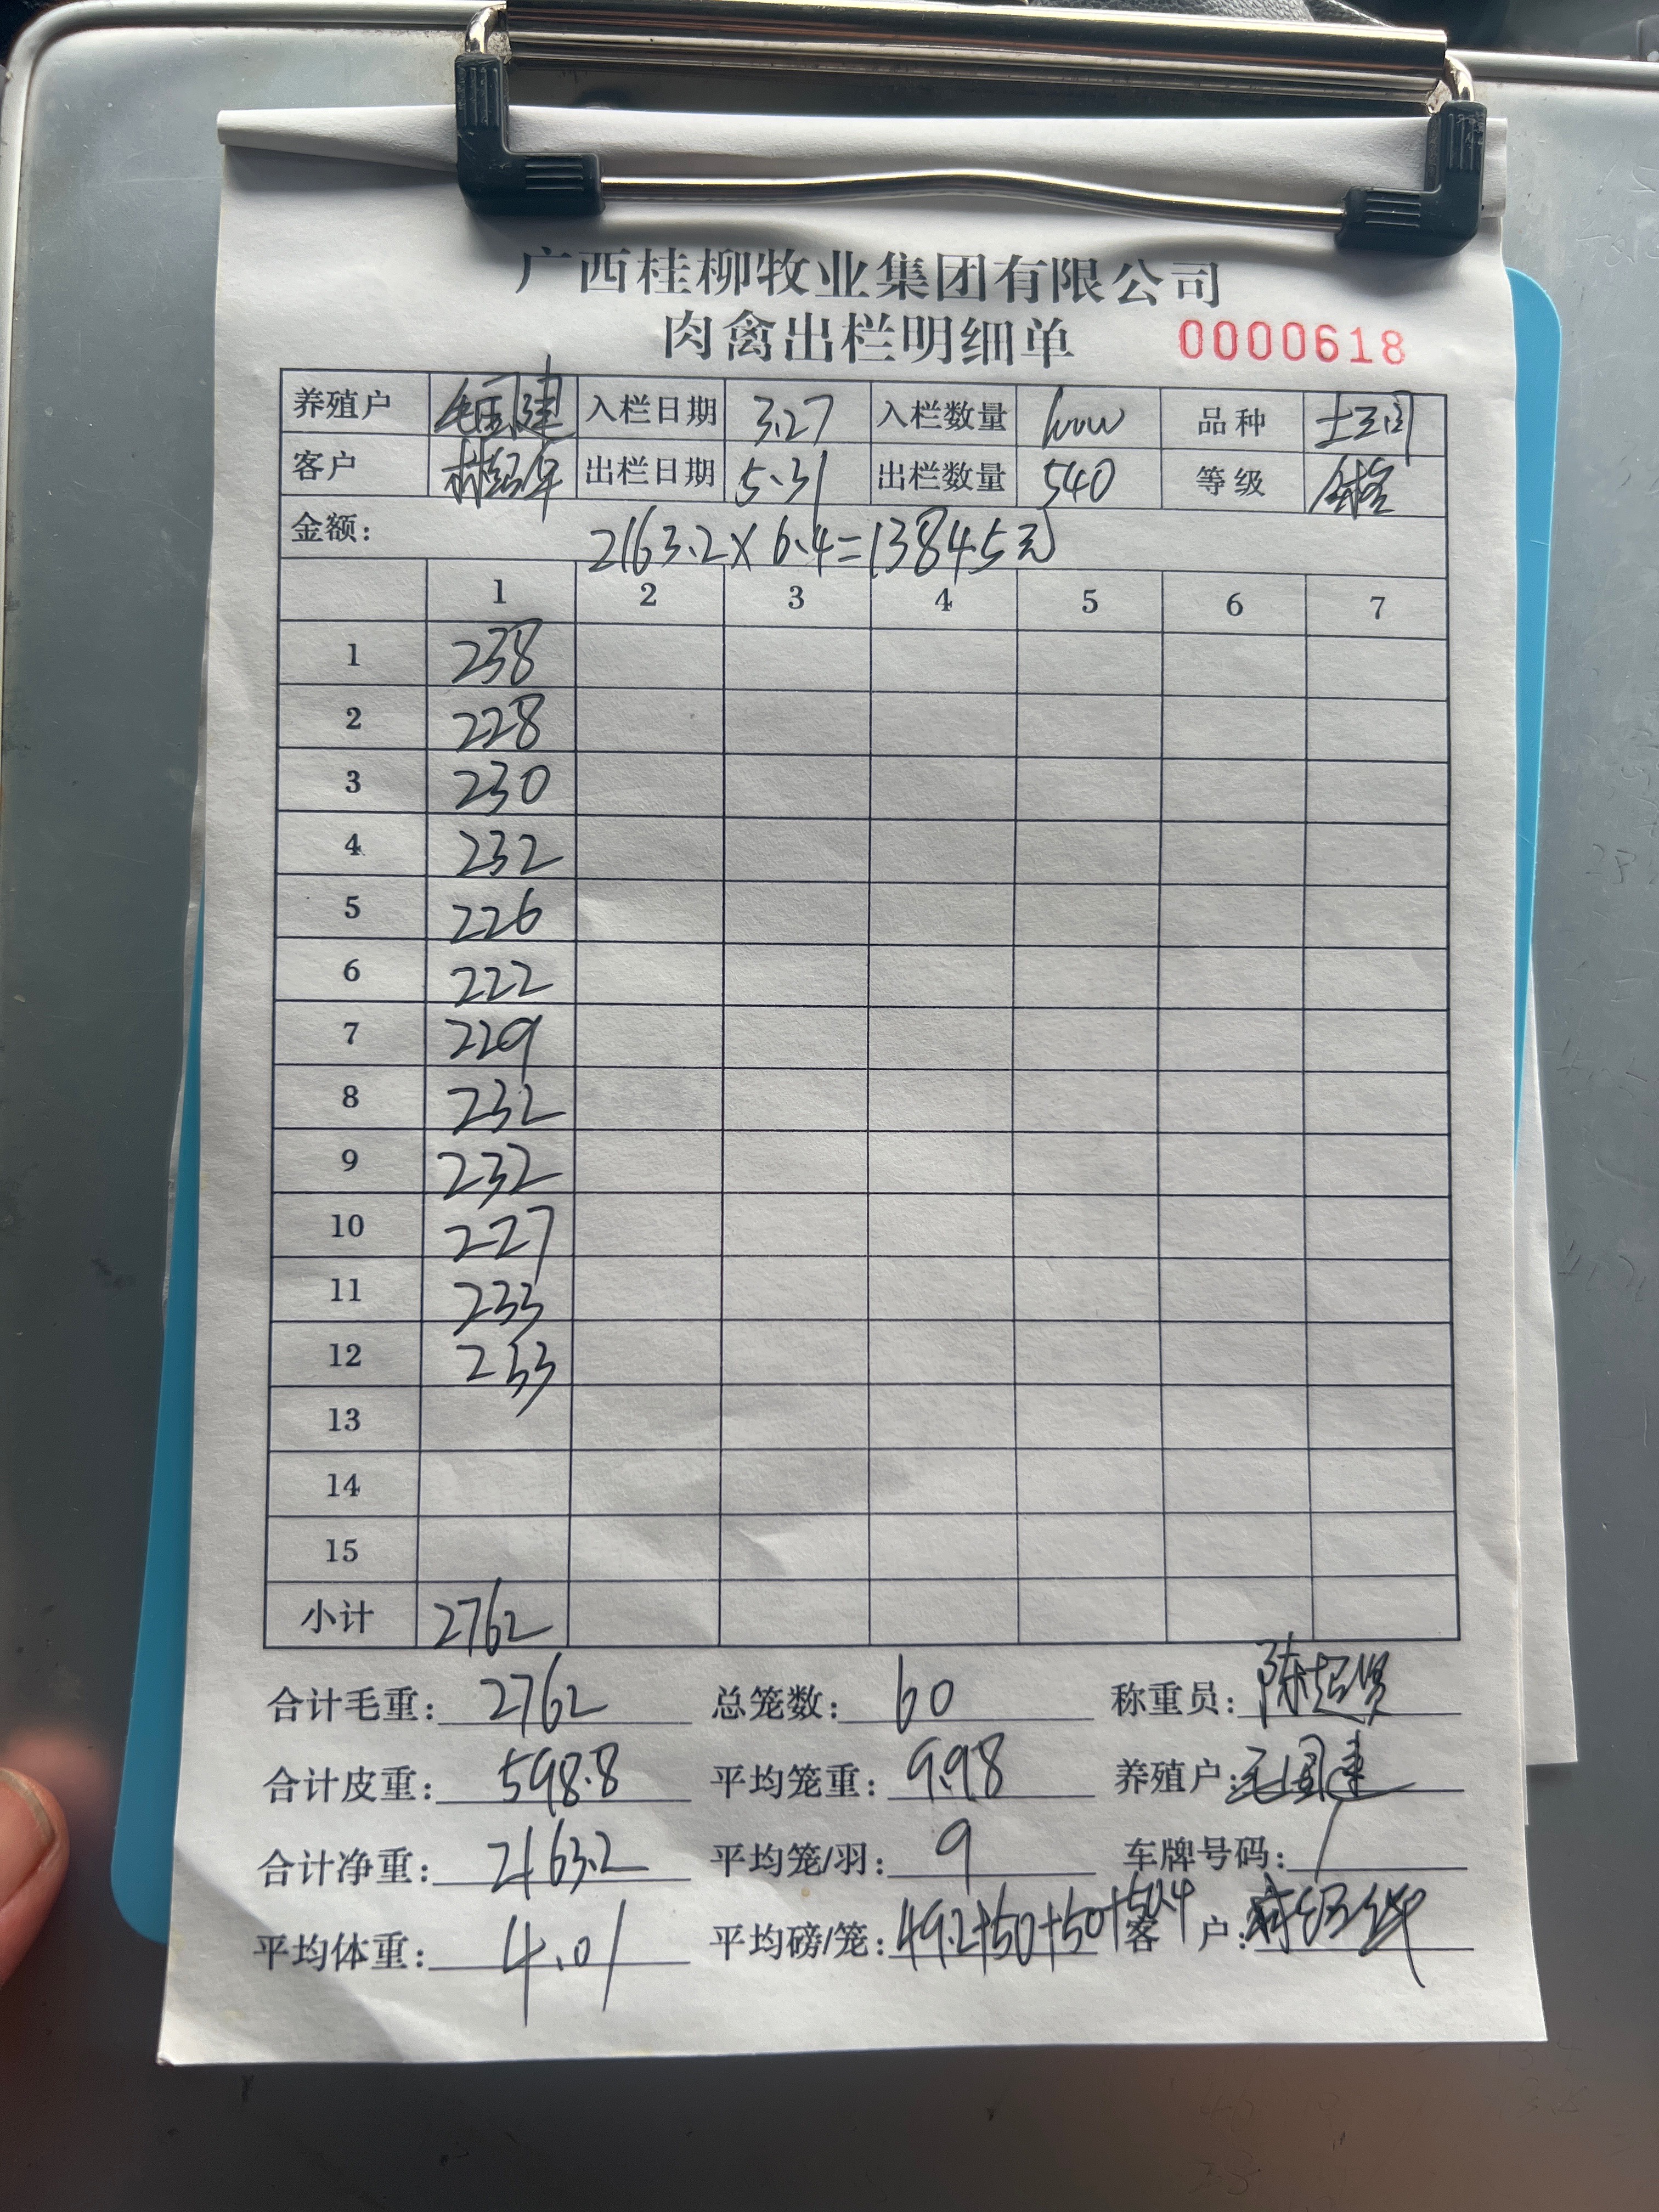 广西桂柳牧业集团有限公司
肉禽出栏明细单 0000618
养殖户 毛国建 入栏日期 3.27 入栏数量 品种
客户 出栏日期 5.31 出栏数量 540 等级
金额: 2163.2×6.4=13845元
1 2 3 4 5 6 7
1 238
2 228
3 230
4 232
5 226
6 222
7 229
8 232
9 232
10 227
11 233
12 233
13
14
15
小计 2762
合计毛重: 2762 总笼数: 60 称重员: 陈超贤
合计皮重: 598.8 平均笼重: 9.98 养殖户: 毛国建
合计净重: 2163.2 平均笼/羽: 9 车牌号码: /
平均体重: 4.01 平均磅/笼: 49.2+50+50+50.4 客户: